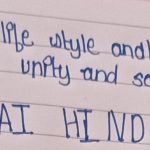 life style and
unity and so
AI HI ND